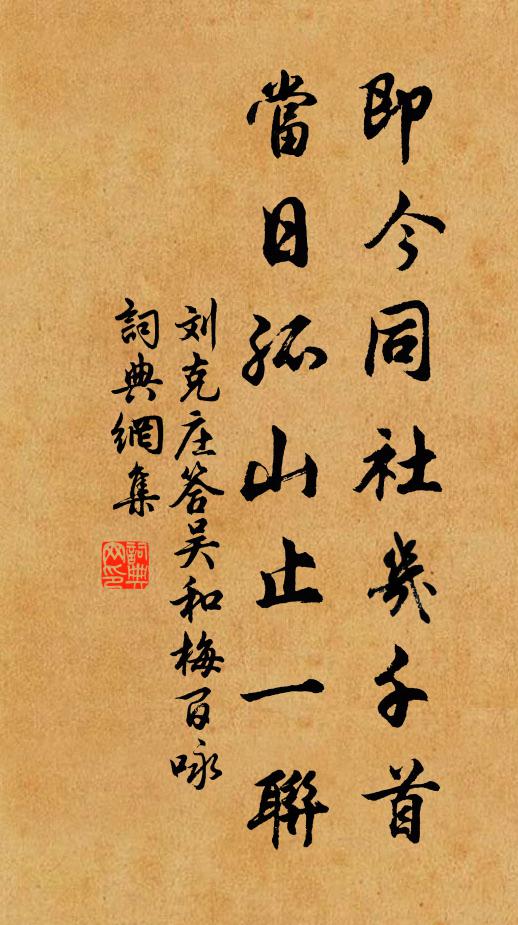 即今同社幾千首
當日孤山止一聯
刘克庄答吴和梅百咏
詞典網集
詞典网印